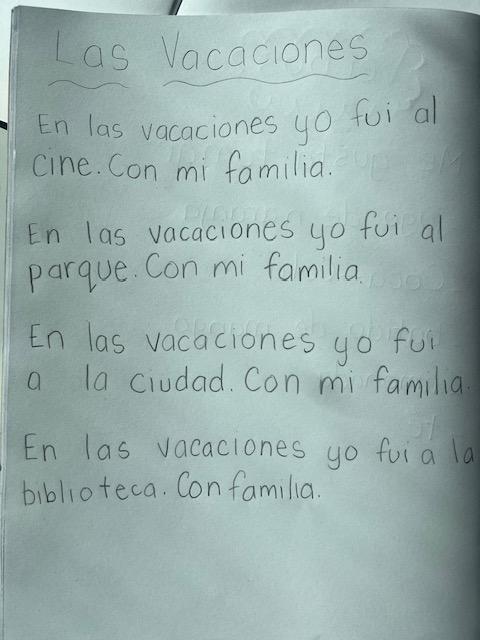 Las Vacaciones
En las vacaciones yo fui al
cine. Con mi familia.
En las vacaciones yo fui al
parque. Con mi familia.
En las vacaciones yo fui
a la ciudad. Con mi familia.
En las vacaciones yo fui a la
biblioteca. Con familia.